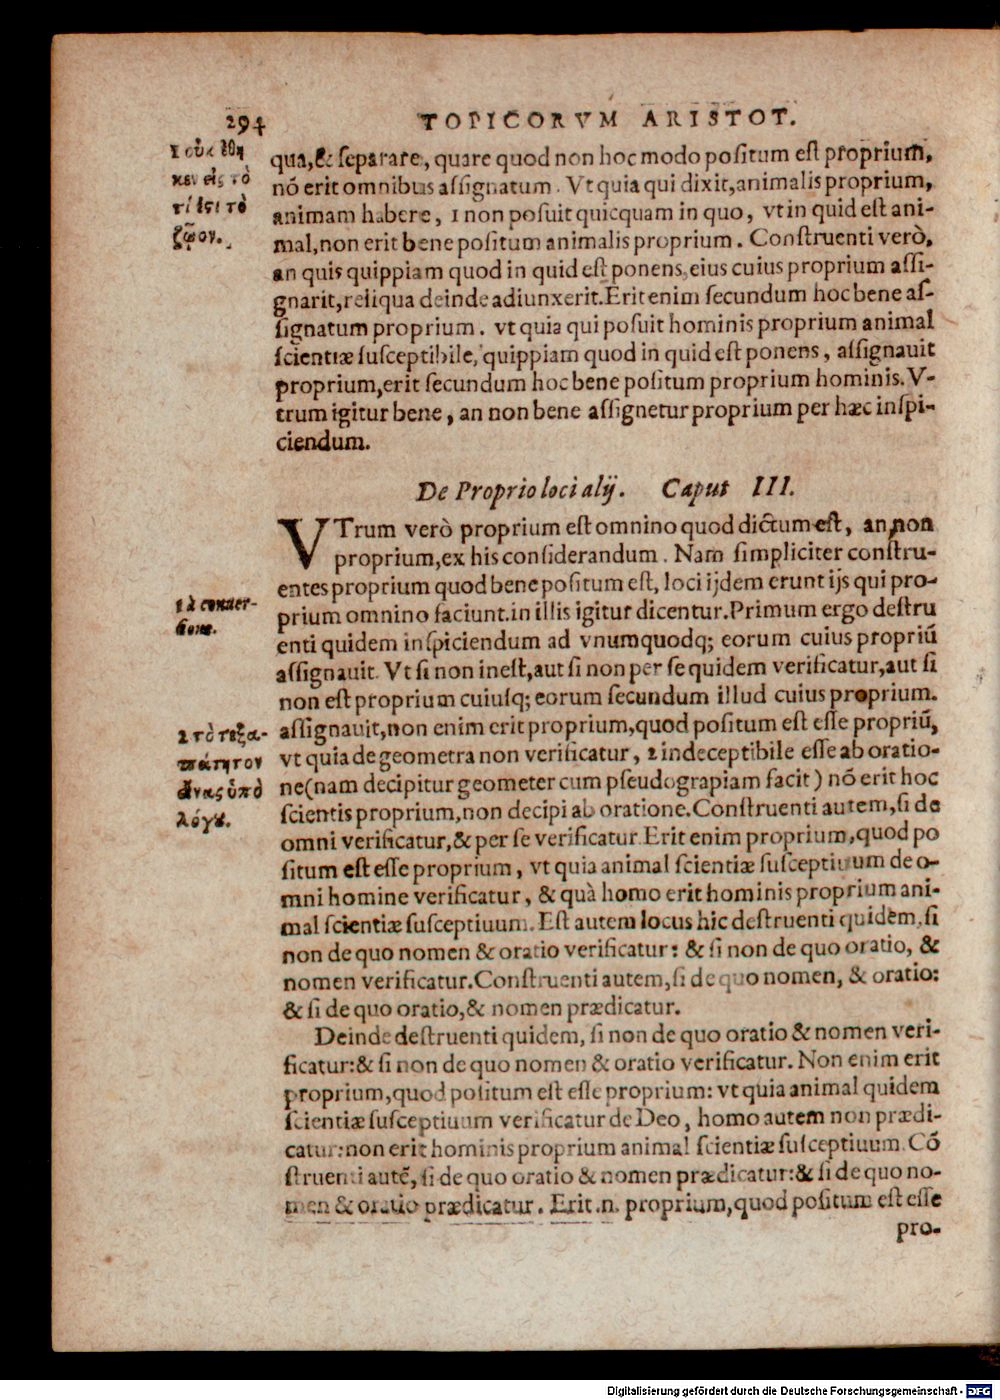 294
TOPICORVM ARISTOT.
1 οὐκ ἔθη
κεν εἰς τὸ
τί ἐςι τὸ
ζῷον.
qua,& ſeparare, quare quod non hoc modo poſitum eſt proprium,
nõ erit omnibus aſsignatum. Vt quia qui dixit,animalis proprium,
animam habere, 1 non poſuit quicquam in quo, vt in quid eſt ani-
mal,non erit bene poſitum animalis proprium. Conſtruenti verò,
an quis quippiam quod in quid eſt ponens,eius cuius proprium aſſi-
gnarit,reliqua deinde adiunxerit.Erit enim ſecundum hoc bene aſ-
ſignatum proprium. vt quia qui poſuit hominis proprium animal
ſcientiæ ſuſceptibile, quippiam quod in quid eſt ponens, aſſignauit
proprium,erit ſecundum hoc bene poſitum proprium hominis.V-
trum igitur bene, an non bene aſſignetur proprium per hæc inſpi-
ciendum.
De Proprio loci alij. Caput III.
VTrum verò proprium eſt omnino quod dictum eſt, an non
proprium,ex his conſiderandum. Nam ſimpliciter conſtru-
entes proprium quod bene poſitum eſt, loci ijdem erunt ijs qui pro-
prium omnino faciunt.in illis igitur dicentur.Primum ergo deſtru
enti quidem inſpiciendum ad vnumquodq; eorum cuius propriũ
aſſignauit. Vt ſi non ineſt,aut ſi non per ſe quidem verificatur,aut ſi
non eſt proprium cuiuſq; eorum ſecundum illud cuius proprium.
aſſignauit,non enim erit proprium,quod poſitum eſt eſſe propriũ,
vt quia de geometra non verificatur, 2 indeceptibile eſſe ab oratio-
ne(nam decipitur geometer cum pſeudograpiam facit) nõ erit hoc
ſcientis proprium,non decipi ab oratione.Conſtruenti autem,ſi de
omni verificatur,& per ſe verificatur.Erit enim proprium,quod po
ſitum eſt eſſe proprium, vt quia animal ſcientiæ ſuſceptiuum de o-
mni homine verificatur, & quà homo erit hominis proprium ani-
mal ſcientiæ ſuſceptiuum. Eſt autem locus hic deſtruenti quidem,ſi
non de quo nomen & oratio verificatur: & ſi non de quo oratio, &
nomen verificatur.Conſtruenti autem,ſi de quo nomen, & oratio:
& ſi de quo oratio,& nomen prædicatur.
1 à conuer-
ſione.
2 τὸ
ὑπὸ
λόγȣ.
Deinde deſtruenti quidem, ſi non de quo oratio & nomen veri-
ficatur:& ſi non de quo nomen & oratio verificatur. Non enim erit
proprium,quod poſitum eſt eſſe proprium: vt quia animal quidem
ſcientiæ ſuſceptiuum verificatur de Deo, homo autem non prædi-
catur:non erit hominis proprium animal ſcientiæ ſuſceptiuum. Cõ
ſtruenti autẽ, ſi de quo oratio & nomen prædicatur:& ſi de quo no-
men & oratio prædicatur. Erit .n. proprium,quod poſitum eſt eſſe
pro-
Digitalisierung gefördert durch die Deutsche Forschungsgemeinschaft - DFG